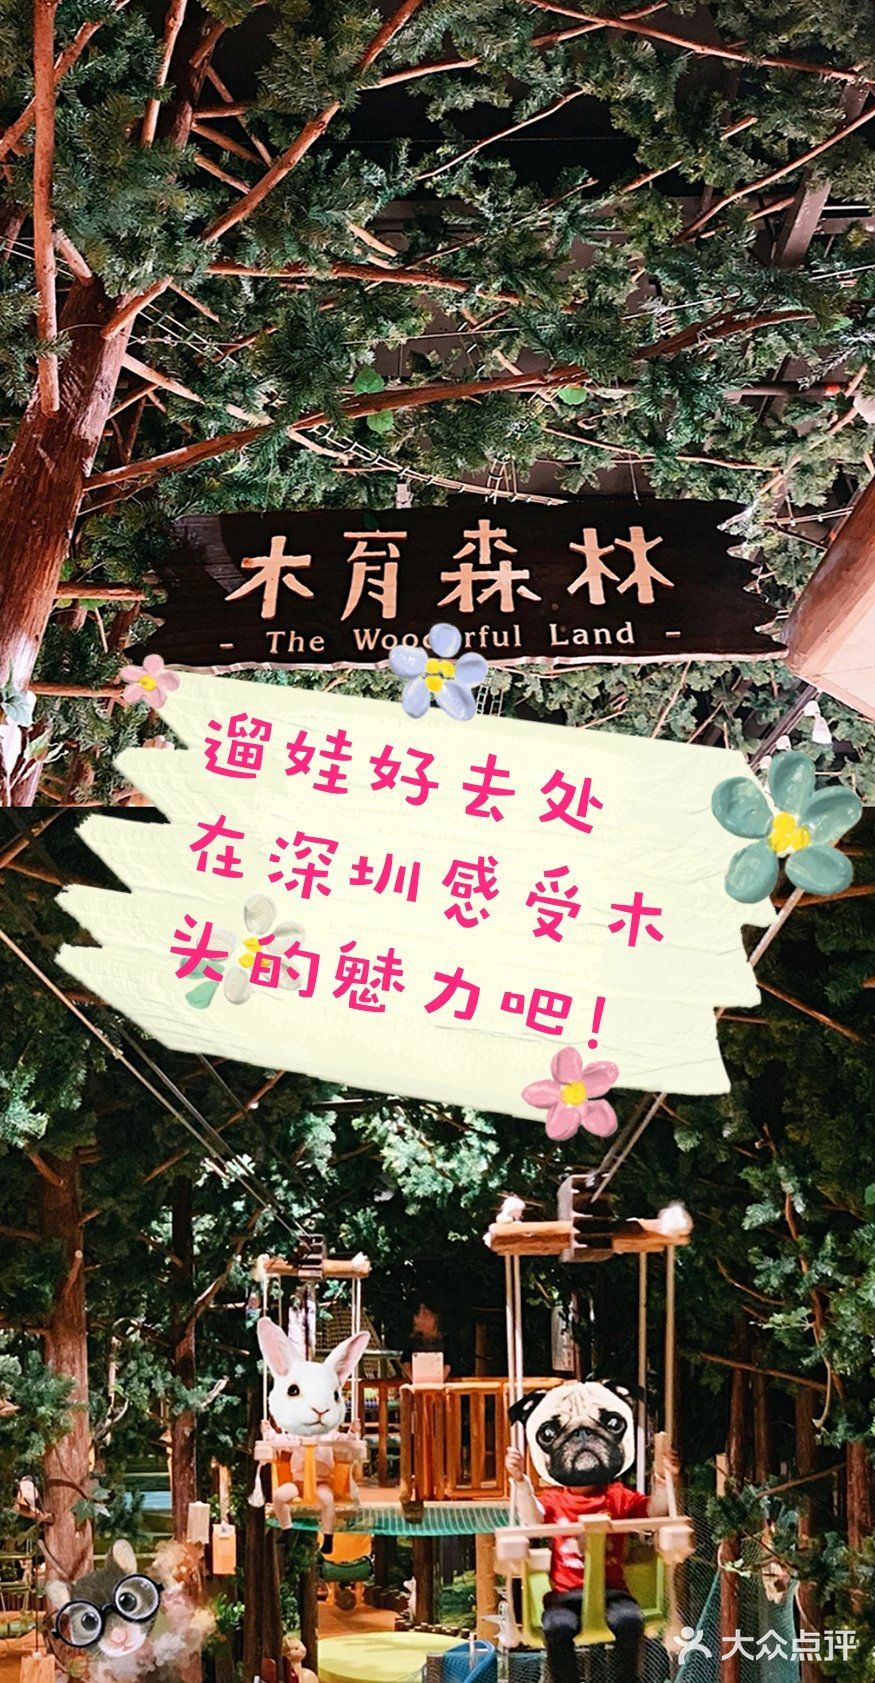 木育森林
- The Wooderful Land -
遛娃好去处
在深圳感受木
头的魅力吧!
大众点评